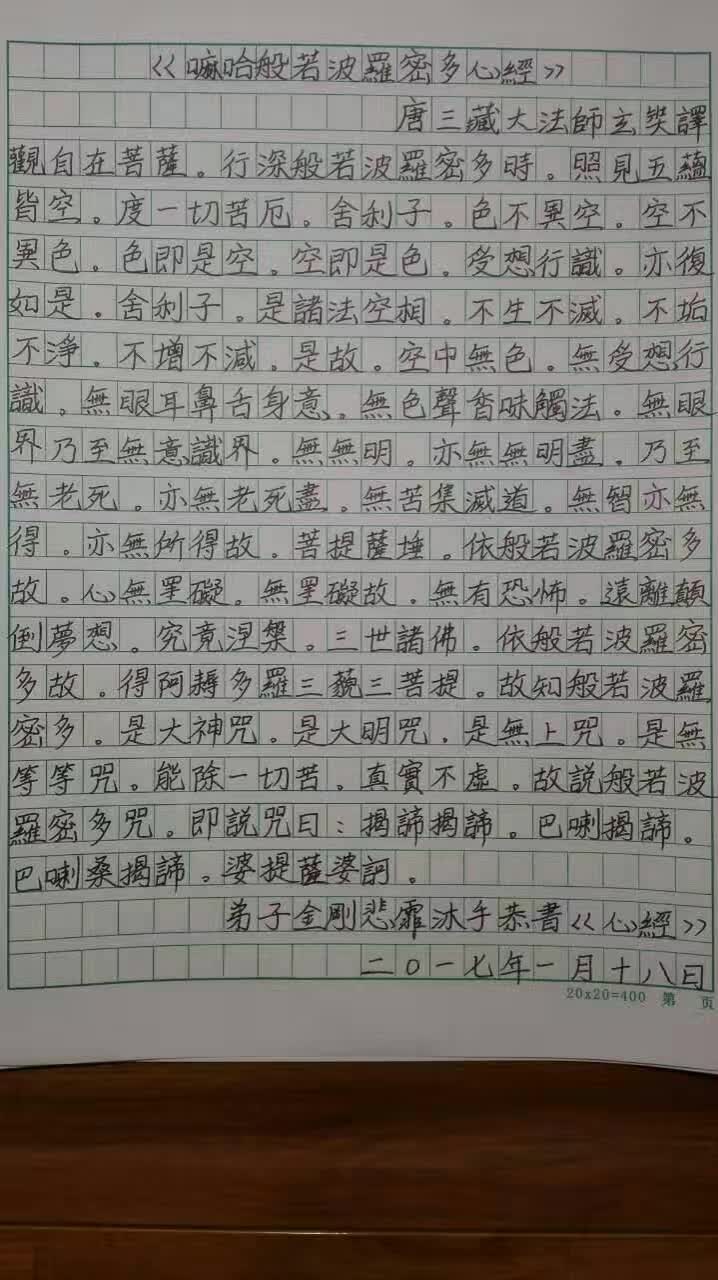 《嘛哈般若波羅密多心經》
唐三藏大法師玄奘譯
觀自在菩薩。行深般若波羅密多時。照見五蘊
皆空。度一切苦厄。舍利子。色不異空。空不
異色。色即是空。空即是色。受想行識。亦復
如是。舍利子。是諸法空相。不生不滅。不垢
不淨。不增不減。是故。空中無色。無受想行
識。無眼耳鼻舌身意。無色聲香味觸法。無眼
界乃至無意識界。無無明。亦無無明盡。乃至
無老死。亦無老死盡。無苦集滅道。無智亦無
得。亦無所得故。菩提薩埵。依般若波羅密多
故。心無罣礙。無罣礙故。無有恐怖。遠離顛
倒夢想。究竟涅槃。三世諸佛。依般若波羅密
多故。得阿耨多羅三藐三菩提。故知般若波羅
密多。是大神咒。是大明咒。是無上咒。是無
等等咒。能除一切苦。真實不虛。故説般若波
羅密多咒。即説咒曰：揭諦揭諦。巴喇揭諦。
巴喇桑揭諦。婆提薩婆訶。
弟子金剛悲霏沐手恭書《心經》
二〇一七年一月十八日
20x20=400 第 页